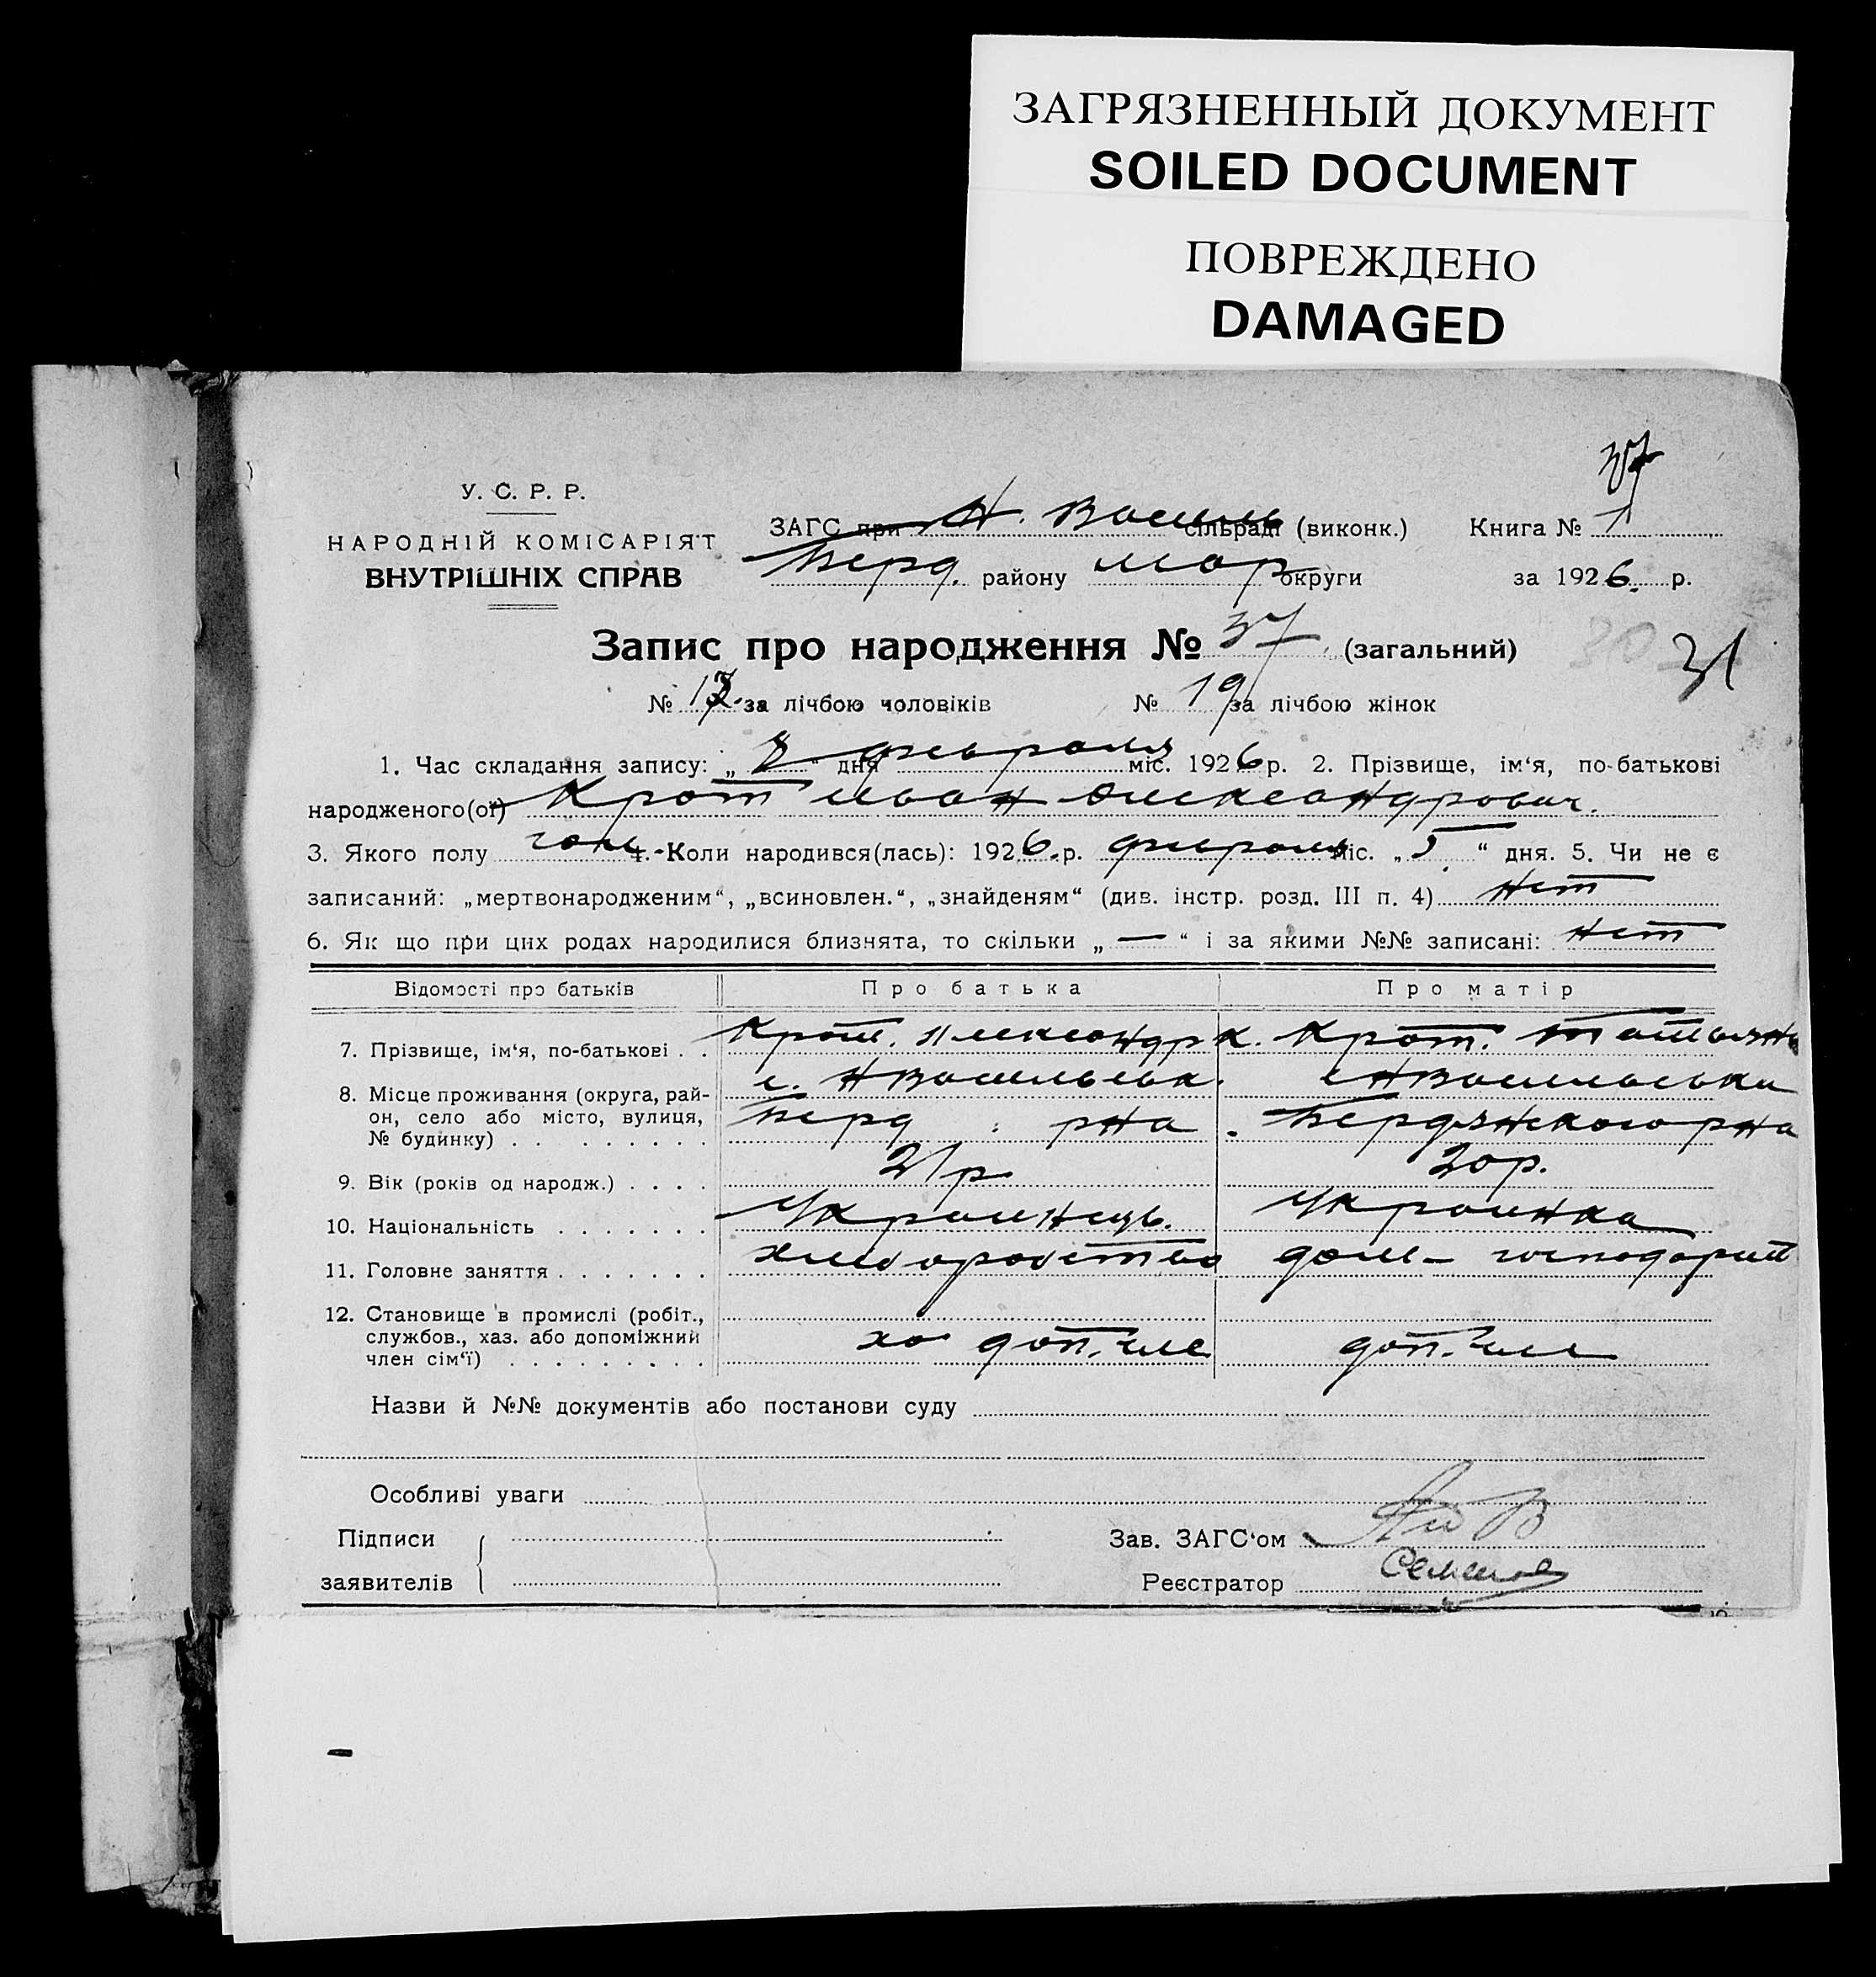 ЗАГРЯЗНЕННЫЙ ДОКУМЕНТ
SOILED DOCUMENT
ПОВРЕЖДЕНО
DAMAGED
37
У. С. Р. Р.
НАРОДНІЙ КОМІСАРІЯТ
ВНУТРІШНІХ СПРАВ
ЗАГС при Н. Василь сільраді (виконк.) Книга № 1
Берд. району Мар округи за 1926. р.
Запис про народження № 37 (загальний)
31
№ за лічбою чоловіків № 19 за лічбою жінок
1. Час складання запису: „ “ дня февраля міс. 1926 р. 2. Прізвище, ім‘я, по-батькові
народженого(ої) Крот Иван Александрович.
3. Якого полу чол. 4. Коли народився(лась): 1926. р. февраль міс. „5“ дня. 5. Чи не є
записаний: „мертвонародженим“, „всиновлен.“, „знайденям“ (див. інстр. розд. III п. 4) нет
6. Як що при цих родах народилися близнята, то скільки „—“ і за якими №№ записані: нет
Відомості про батьків Про батька Про матір
7. Прізвище, ім‘я, по-батькові . . Крот. Александр К. Крот. Татьяна
8. Місце проживання (округа, рай- с. НВасильевк. с НВасильевка
он, село або місто, вулиця, Берд рна Бердянского рна
№ будинку) . . . . . . . . .
9. Вік (років од народж.) . . . . 21 р 20 р.
10. Національність . . . . . . . Украинец. Украинка
11. Головне заняття . . . . . . . хлеборобство дом- господарит
12. Становище в промислі (робіт.,
службов., хаз. або допоміжний доп. чле доп. чле
член сім‘ї) . . . . . . . . .
Назви й №№ документів або постанови суду
Особливі уваги
Підписи
заявителів
Зав. ЗАГС‘ом
Реєстратор